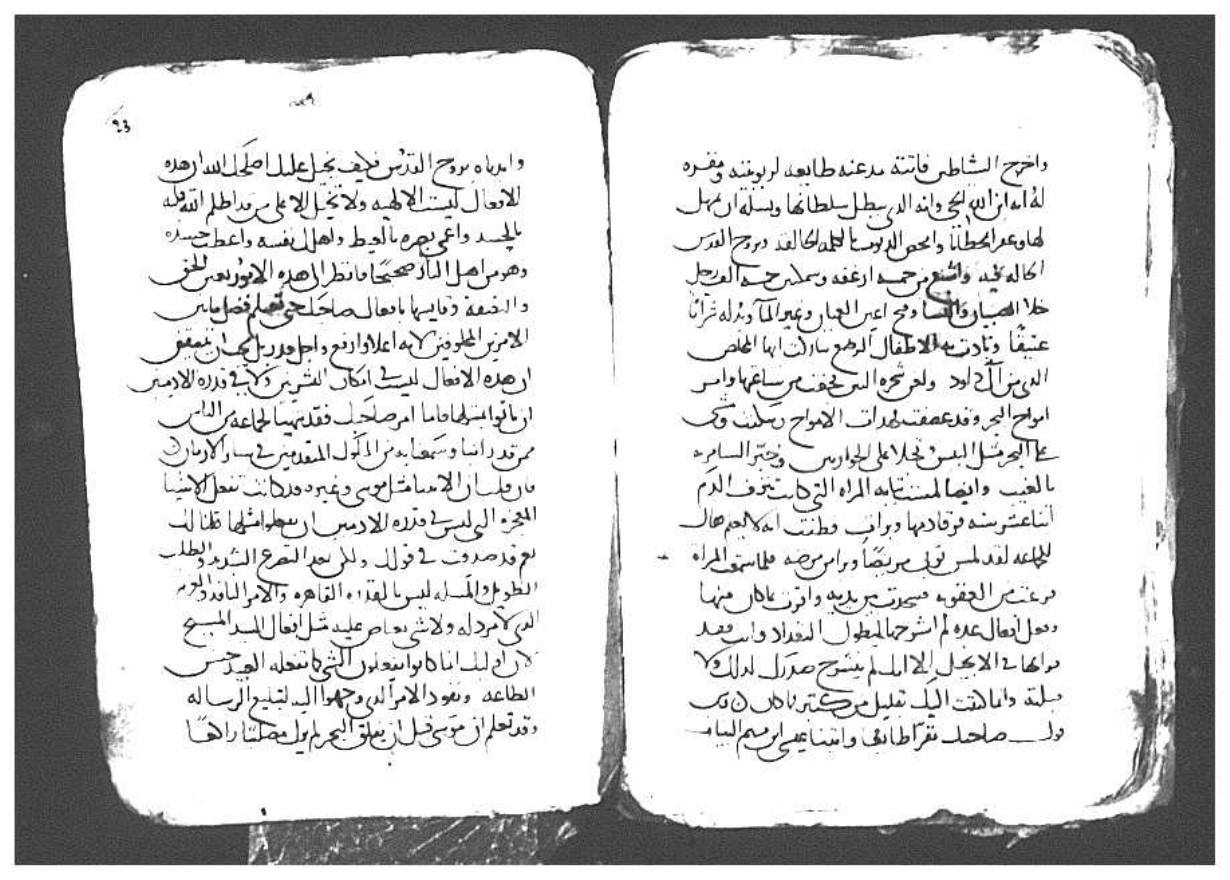 واخرج الشياطين فاتته مدعنه طايعه لربوبيته ومقره
له انه ابن الله الحي وانه الذي يبطل سلطانها وتسله ان يمهل
لها وغفر الخطايا ومحص الذنوب بالكلمه الخالقه وبروح القدس
الحاله فيه واشبع من خمسه ارغفه وسمكتين خمسه الف رجل
خلا الصبيان والنسا وفتح اعين العميان وغير الما وبدله شرابًا
عتيقًا ونادت به الاطفال الرضع مبارك ايها المخلص
الذي من آل داود ولعن شجره التين فجفت من ساعتها وامر
امواج البحر وقد عصفت فهدات الامواج وسكنت ومشى
على البحر مثل اليبس فتجلا على الحواريين وخبر السامره
بالغيب وايضا لمست ثيابه المراه التي كانت تنزف الدم
اثنا عشر سنه فرقا دمها وبرات وظنت انه لا يعلم فقال
للجماعه لقد لمس ثوبي مريضًا وبرا من مرضه فلما سمعت المراه
فزعت من العقوبه فسجدت بين يديه واقرت بما كان منها
وفعل افعال عده لم اشرحها ليطول التعداد وانت فقد
قراتها في الانجيل الا انك لم ينشرح صدرك لذلك ولا
قبلته وانما كتبت اليك بقليل من كثير مما كان
قول صاحبك تقرا ظاهرًا واتينا عيسى ابن مريم البينات
23
وايدناه بروح القدس فكيف يخيل عليك اصلحك الله ان هذه
الافعال ليست الالهيه ولا تخيل الا على من قد اظلم الله قلبه
بالحسد واعمى بصره بالغيظ واهلك نفسه واعطب جسده
وهو من اهل النار صحيحًا فانظر الى هذه الامور بعين الحق
والنصفه وقايسها بافعال صاحبك حتى تعلم فضل ما بين
الامرين المخلوقين لانه اعلا وارفع واجل قدر بل يجب ان يتحقق
ان هذه الافعال ليست في امكان البشريين ولا في قدره الادميين
ان ياتوا بمثلها فاما امر صاحبك فقد تهيا لجماعه من الناس
ممن قد راينا وسمعنا به من الملوك المتقدمين في ساير الازمان
فان قلت ان الانبيا مثل موسى وغيره قد كانت تفعل الاشيا
المعجزه التي ليس في قدره الادميين ان يفعلوا مثلها قلنا لك
نعم قد صدقت في قولك ولكن بعد التضرع الشديد والطلب
الطويل والمسله ليس بالقدره القاهره والامر النافذ والعزم
الذي لا مرد له ولا شي يعتاص عليه مثل افعال السيد المسيح
لان اوليك انما كانوا يفعلون الشي كما تفعله العبيد بحسن
الطاعه ونفود الامر الذي وجهوا اليه لتبليغ الرساله
وقد تعلم ان موسى قبل ان يفلق البحر لم يزل مصليًا راكعًا